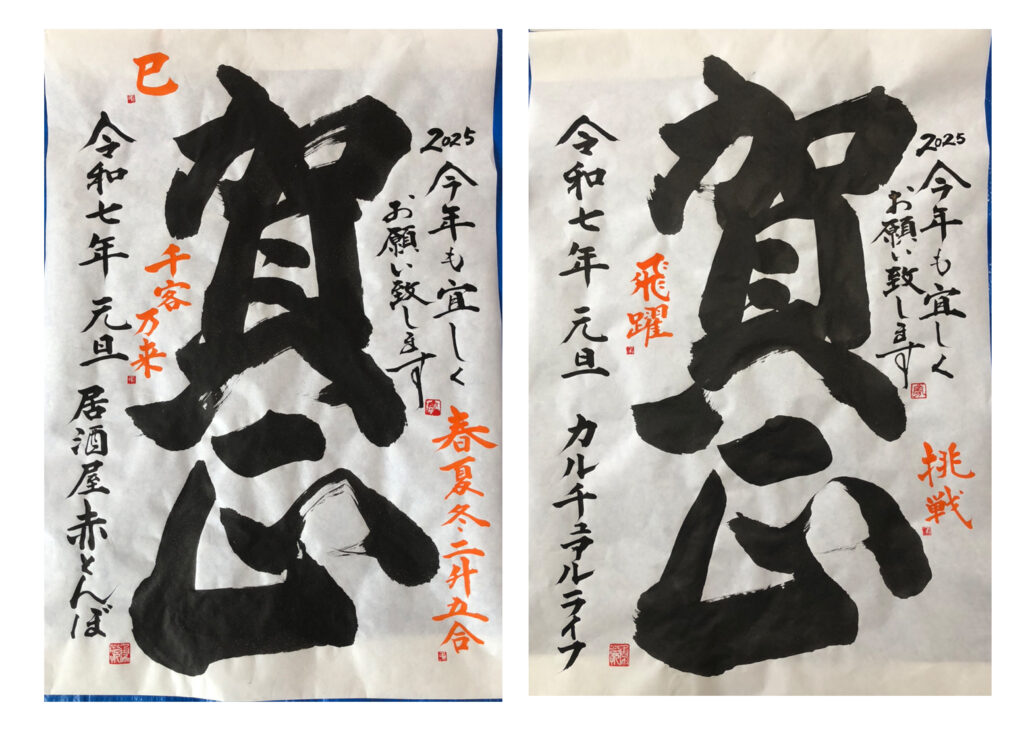 賀正
2025
今年も宜しく
お願い致します
春夏冬二升五合
巳
千客万来
令和七年 元旦
居酒屋赤とんぼ
賀正
2025
今年も宜しく
お願い致します
挑戦
飛躍
令和七年 元旦
カルチュアルライフ